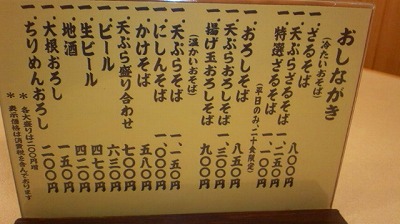 おしながき
(冷たいおそば)
一.ざるそば 八〇〇円
一.天ぷらざるそば 一、二五〇円
一.特選ざるそば
(平日のみ、二十食限定)
一.おろしそば 八五〇円
一.天ぷらおろしそば
一.揚げ玉おろしそば 九〇〇円
(温かいおそば)
一.天ぷらそば 一、一五〇円
一.にしんそば 一、〇〇〇円
一.かけそば 七〇〇円
一.天ぷら盛り合わせ 五八〇円
一.ビール 六三〇円
一.生ビール 四七〇円
一.地酒 四二〇円
一.大根おろし 一五〇円
一.ちりめんおろし 二〇〇円
＊各大盛りは二〇〇円増
＊表示価格は消費税を含んでおります